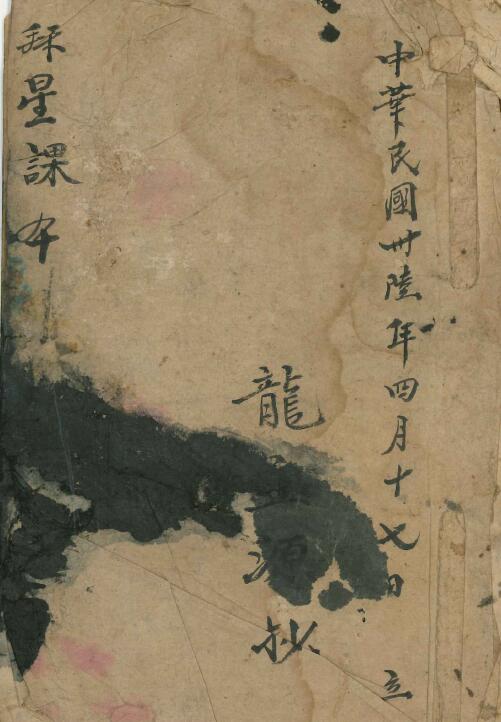 中華民國卅陸年四月十七日 立
龍 源 抄
星課本